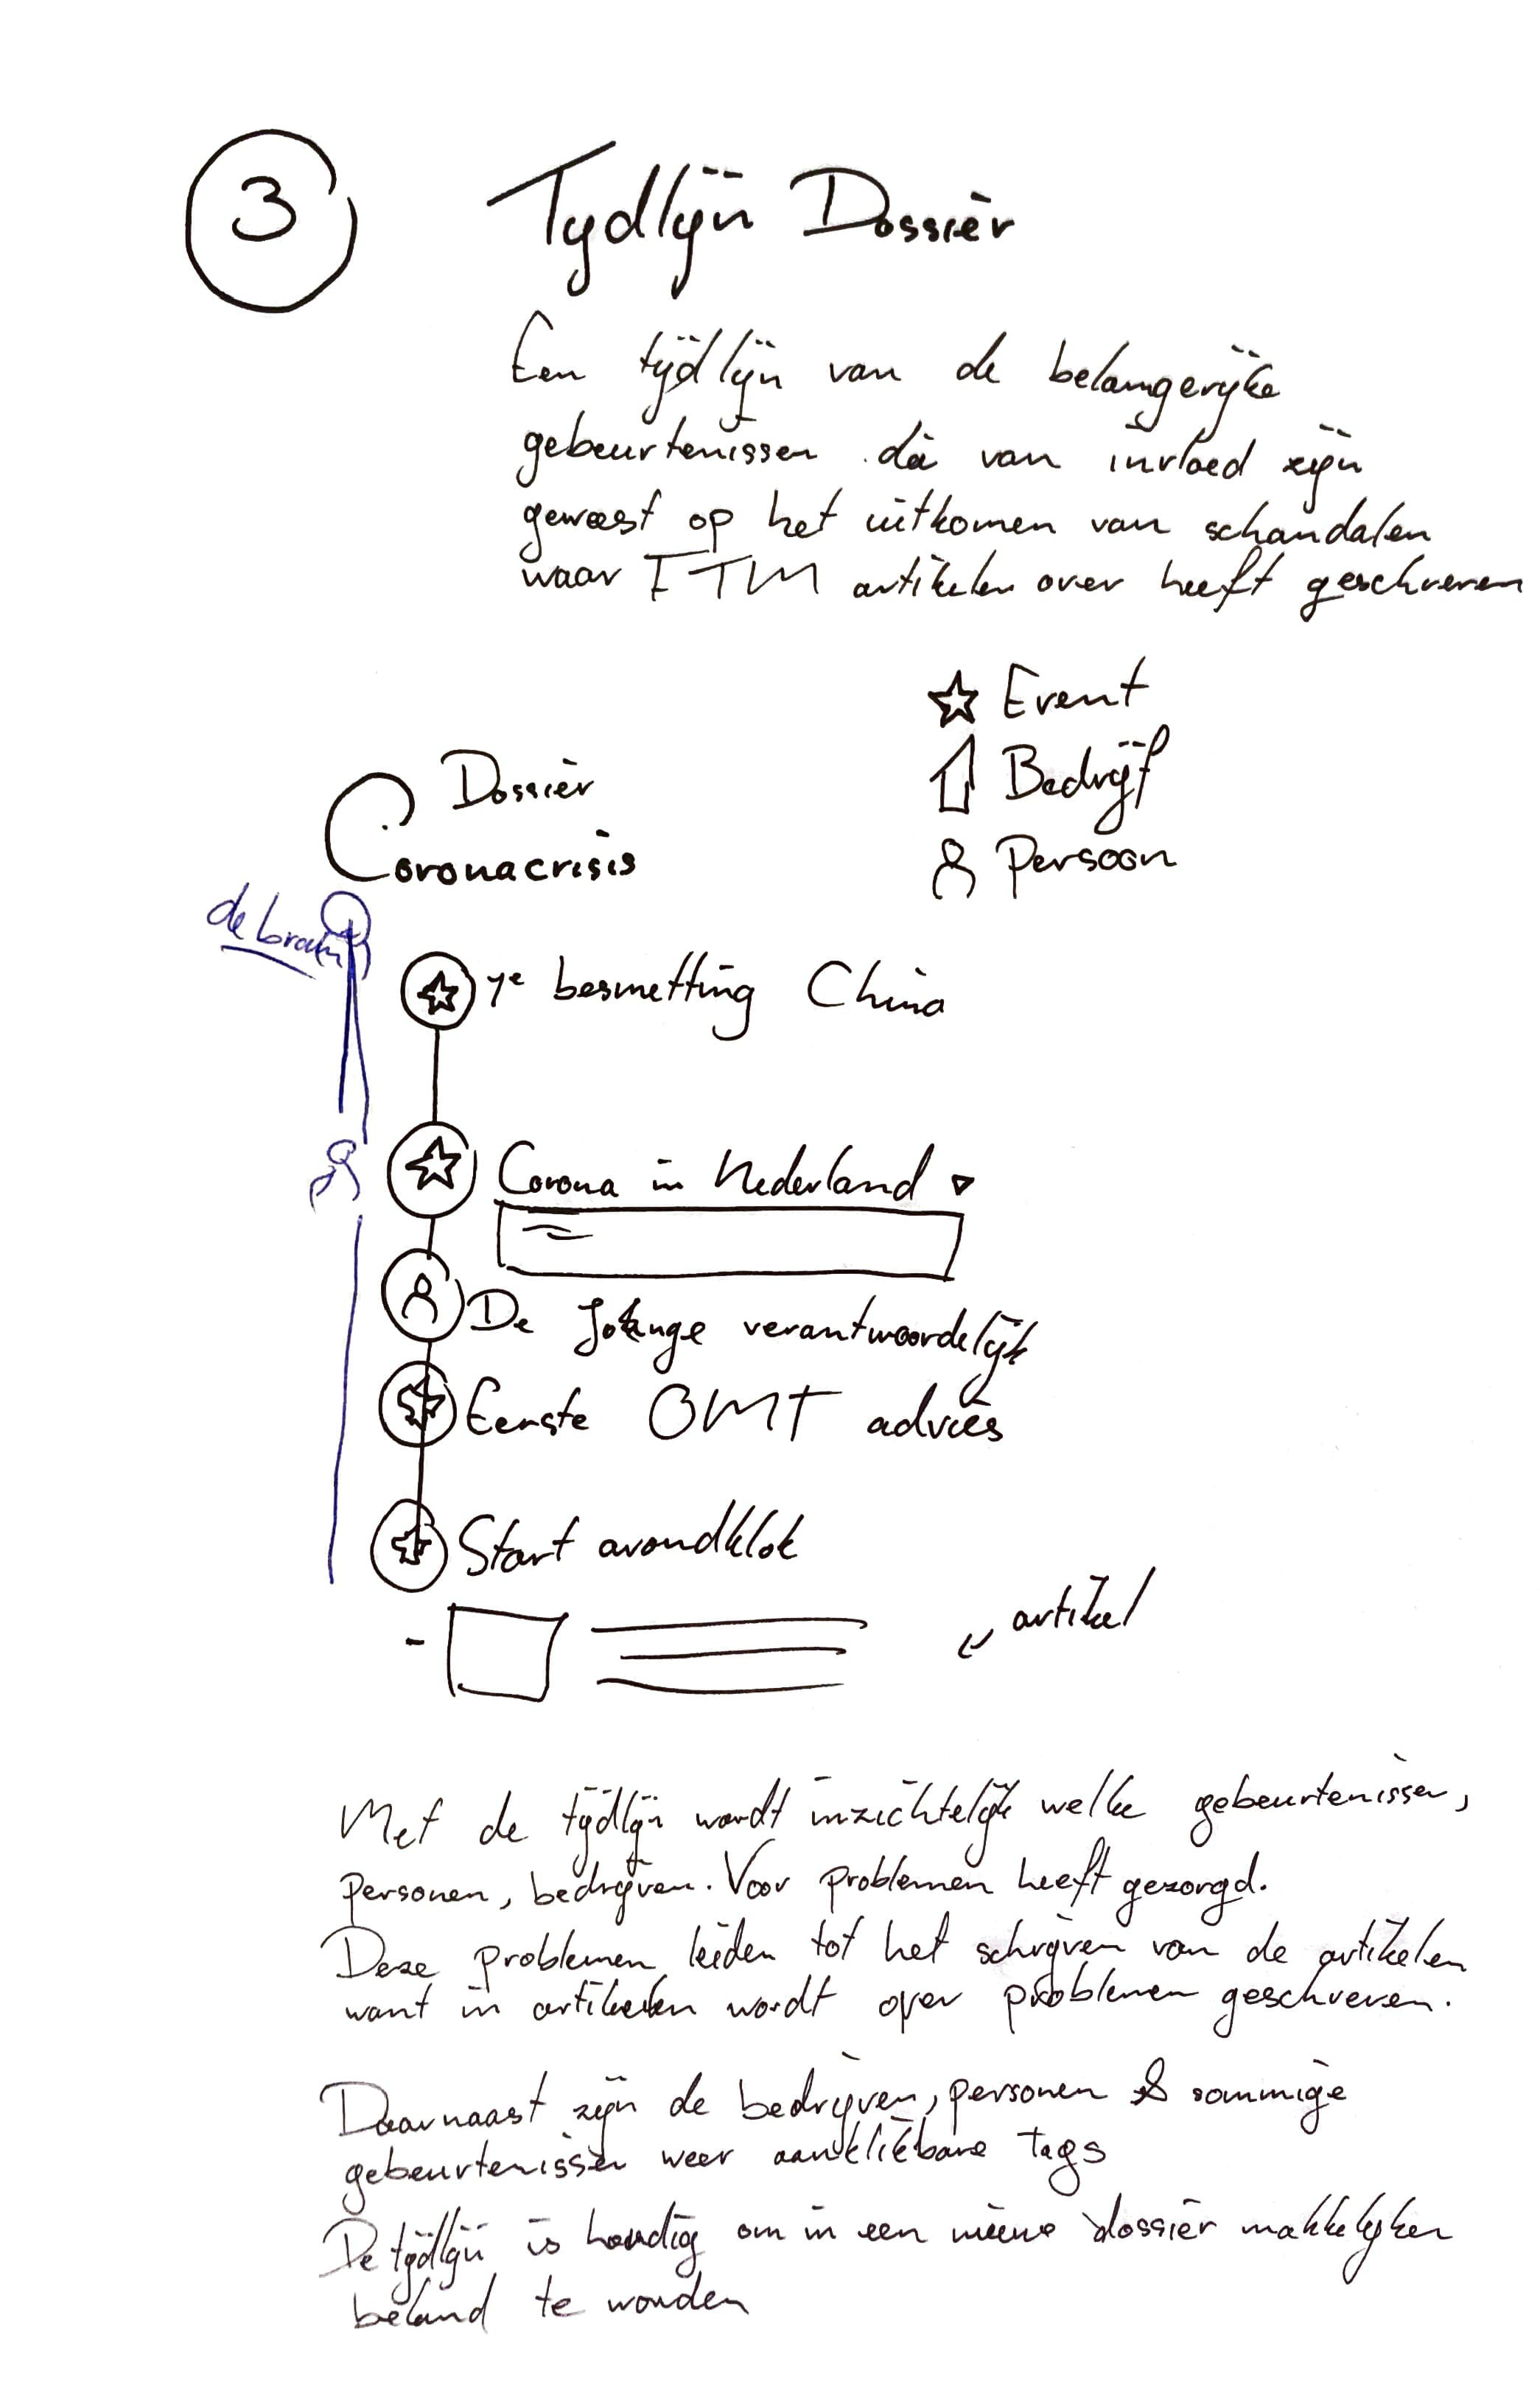 3
Tijdlijn Dossier
Een tijdlijn van de belangerijke
gebeurtenissen die van invloed zijn
geweest op het uitkomen van schandalen
waar FTM artikelen over heeft geschreven
Event
Bedrijf
Persoon
Dossier
Coronacrisis
de
1e besmetting China
Corona in Nederland
De Jonge verantwoordelijk
Eerste OMT advies
Start avondklok
artikel
Met de tijdlijn wordt inzichtelijk welke gebeurtenissen,
personen, bedrijven. Voor problemen heeft gezorgd.
Deze problemen leiden tot het schrijven van de artikelen
want in artikelen wordt over problemen geschreven.
Daarnaast zijn de bedrijven, personen & sommige
gebeurtenissen weer aanklikbare tags
De tijdlijn is handig om in een nieuw dossier makkelijker
beland te worden